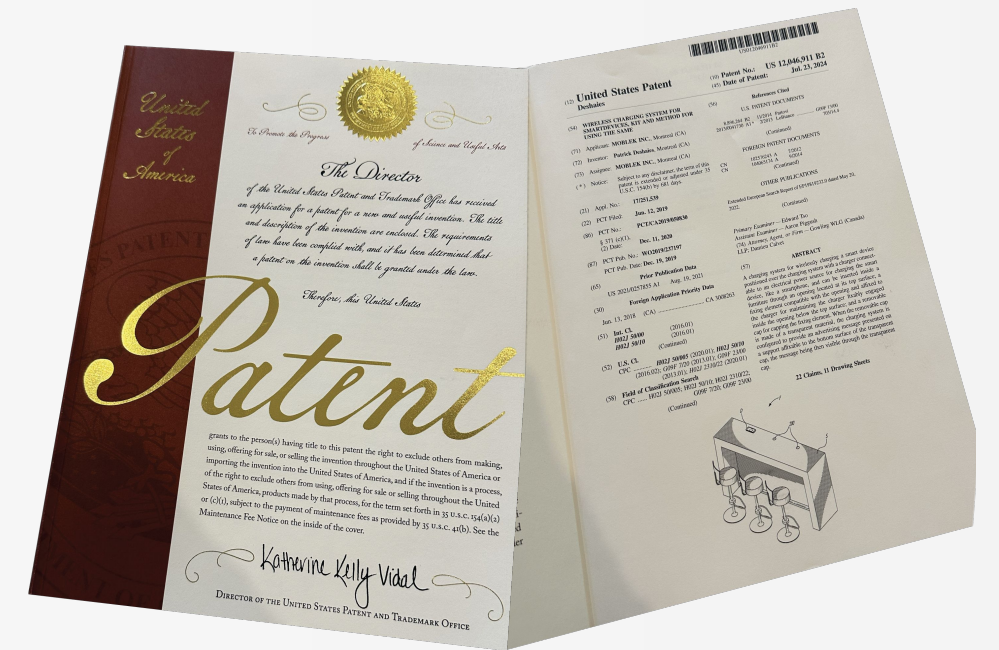 United
States
of
America
To Promote the Progress
of Science and Useful Arts
The Director
of the United States Patent and Trademark Office has received
an application for a patent for a new and useful invention. The title
and description of the invention are enclosed. The requirements
of law have been complied with, and it has been determined that
a patent on the invention shall be granted under the law.
Therefore, this United States
Patent
grants to the person(s) having title to this patent the right to exclude others from making,
using, offering for sale, or selling the invention throughout the United States of America or
importing the invention into the United States of America, and if the invention is a process,
of the right to exclude others from using, offering for sale or selling throughout the United
States of America, products made by that process, for the term set forth in 35 U.S.C. 154(a)(2)
or (c)(1), subject to the payment of maintenance fees as provided by 35 U.S.C. 41(b). See the
Maintenance Fee Notice on the inside of the cover.
Katherine Kelly Vidal
Director of the United States Patent and Trademark Office
US012046911B2
(12) United States Patent
Deshaies
(10) Patent No.: US 12,046,911 B2
(45) Date of Patent: Jul. 23, 2024
(54) WIRELESS CHARGING SYSTEM FOR
SMARTDEVICES, KIT AND METHOD FOR
USING THE SAME
(71) Applicant: MOBLEK INC., Montreal (CA)
(72) Inventor: Patrick Deshaies, Montreal (CA)
(73) Assignee: MOBLEK INC., Montreal (CA)
(*) Notice: Subject to any disclaimer, the term of this
patent is extended or adjusted under 35
U.S.C. 154(b) by 681 days.
(21) Appl. No.: 17/251,539
(22) PCT Filed: Jun. 12, 2019
(86) PCT No.: PCT/CA2019/050830
§ 371 (c)(1),
(2) Date: Dec. 11, 2020
(87) PCT Pub. No.: WO2019/237197
PCT Pub. Date: Dec. 19, 2019
(65) Prior Publication Data
US 2021/0257855 A1 Aug. 19, 2021
(30) Foreign Application Priority Data
Jun. 13, 2018 (CA) CA 3008263
(51) Int. Cl.
H02J 50/00 (2016.01)
H02J 50/10 (2016.01)
(Continued)
(52) U.S. Cl.
CPC H02J 50/005 (2020.01); H02J 50/10
(2016.02); G09F 7/20 (2013.01); G09F 23/00
(2013.01); H02J 2310/22 (2020.01)
(58) Field of Classification Search
CPC ..... H02J 50/005; H02J 50/10; H02J 2310/22;
G09F 7/20; G09F 23/00
(Continued)
(56) References Cited
U.S. PATENT DOCUMENTS
(Continued)
FOREIGN PATENT DOCUMENTS
CN
CN
(Continued)
OTHER PUBLICATIONS
2022.
(Continued)
Primary Examiner — Edward Tso
Assistant Examiner — Aaron Piggush
(74) Attorney, Agent, or Firm — Gowling WLG (Canada)
LLP; Damien Calvet
(57) ABSTRACT
A charging system for wirelessly charging a smart device
positioned over the charging system with a charger connect-
able to an electrical power source for charging the smart
device, like a smartphone, and can be inserted inside a
furniture through an opening located at its top surface, a
fixing element compatible with the opening and affixed to
the charger for maintaining the charger fixedly engaged
inside the opening below the top surface; and a removable
cap for capping the fixing element. When the removable cap
is made of a transparent material, the charging system is
configured to provide an advertising message presented on
a support affixable to the bottom surface of the transparent
cap, the message being then visible through the transparent
cap.
22 Claims, 11 Drawing Sheets